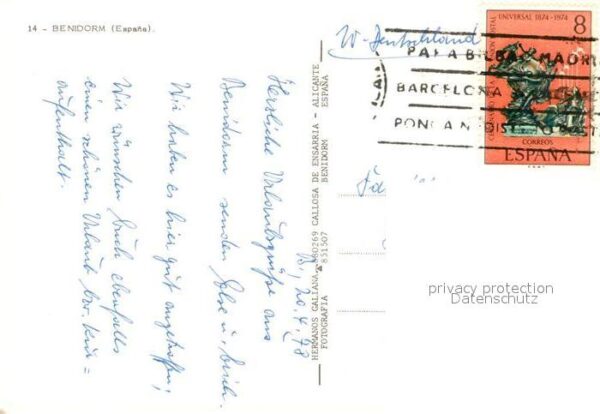 14 - BENIDORM (España).
B., 20.4.78
Herzliche Urlaubsgrüße aus
Benidorm senden Else u. Erich.
Wir haben es hier gut angetroffen,
Wir wünschen Euch ebenfalls
einen schönen Urlaub bzw. Kur=
aufenthalt.
HERMANOS GALIANA, 880269 CALLOSA DE ENSARRIA - ALICANTE
FOTOGRAFIA 851507 BENIDORM ESPAÑA
W-Deutschland
UNIVERSAL 1874-1974
8
CORREOS
ESPAÑA
PARA BILBAO MADRID
BARCELONA
PONGA
privacy protection
Datenschutz